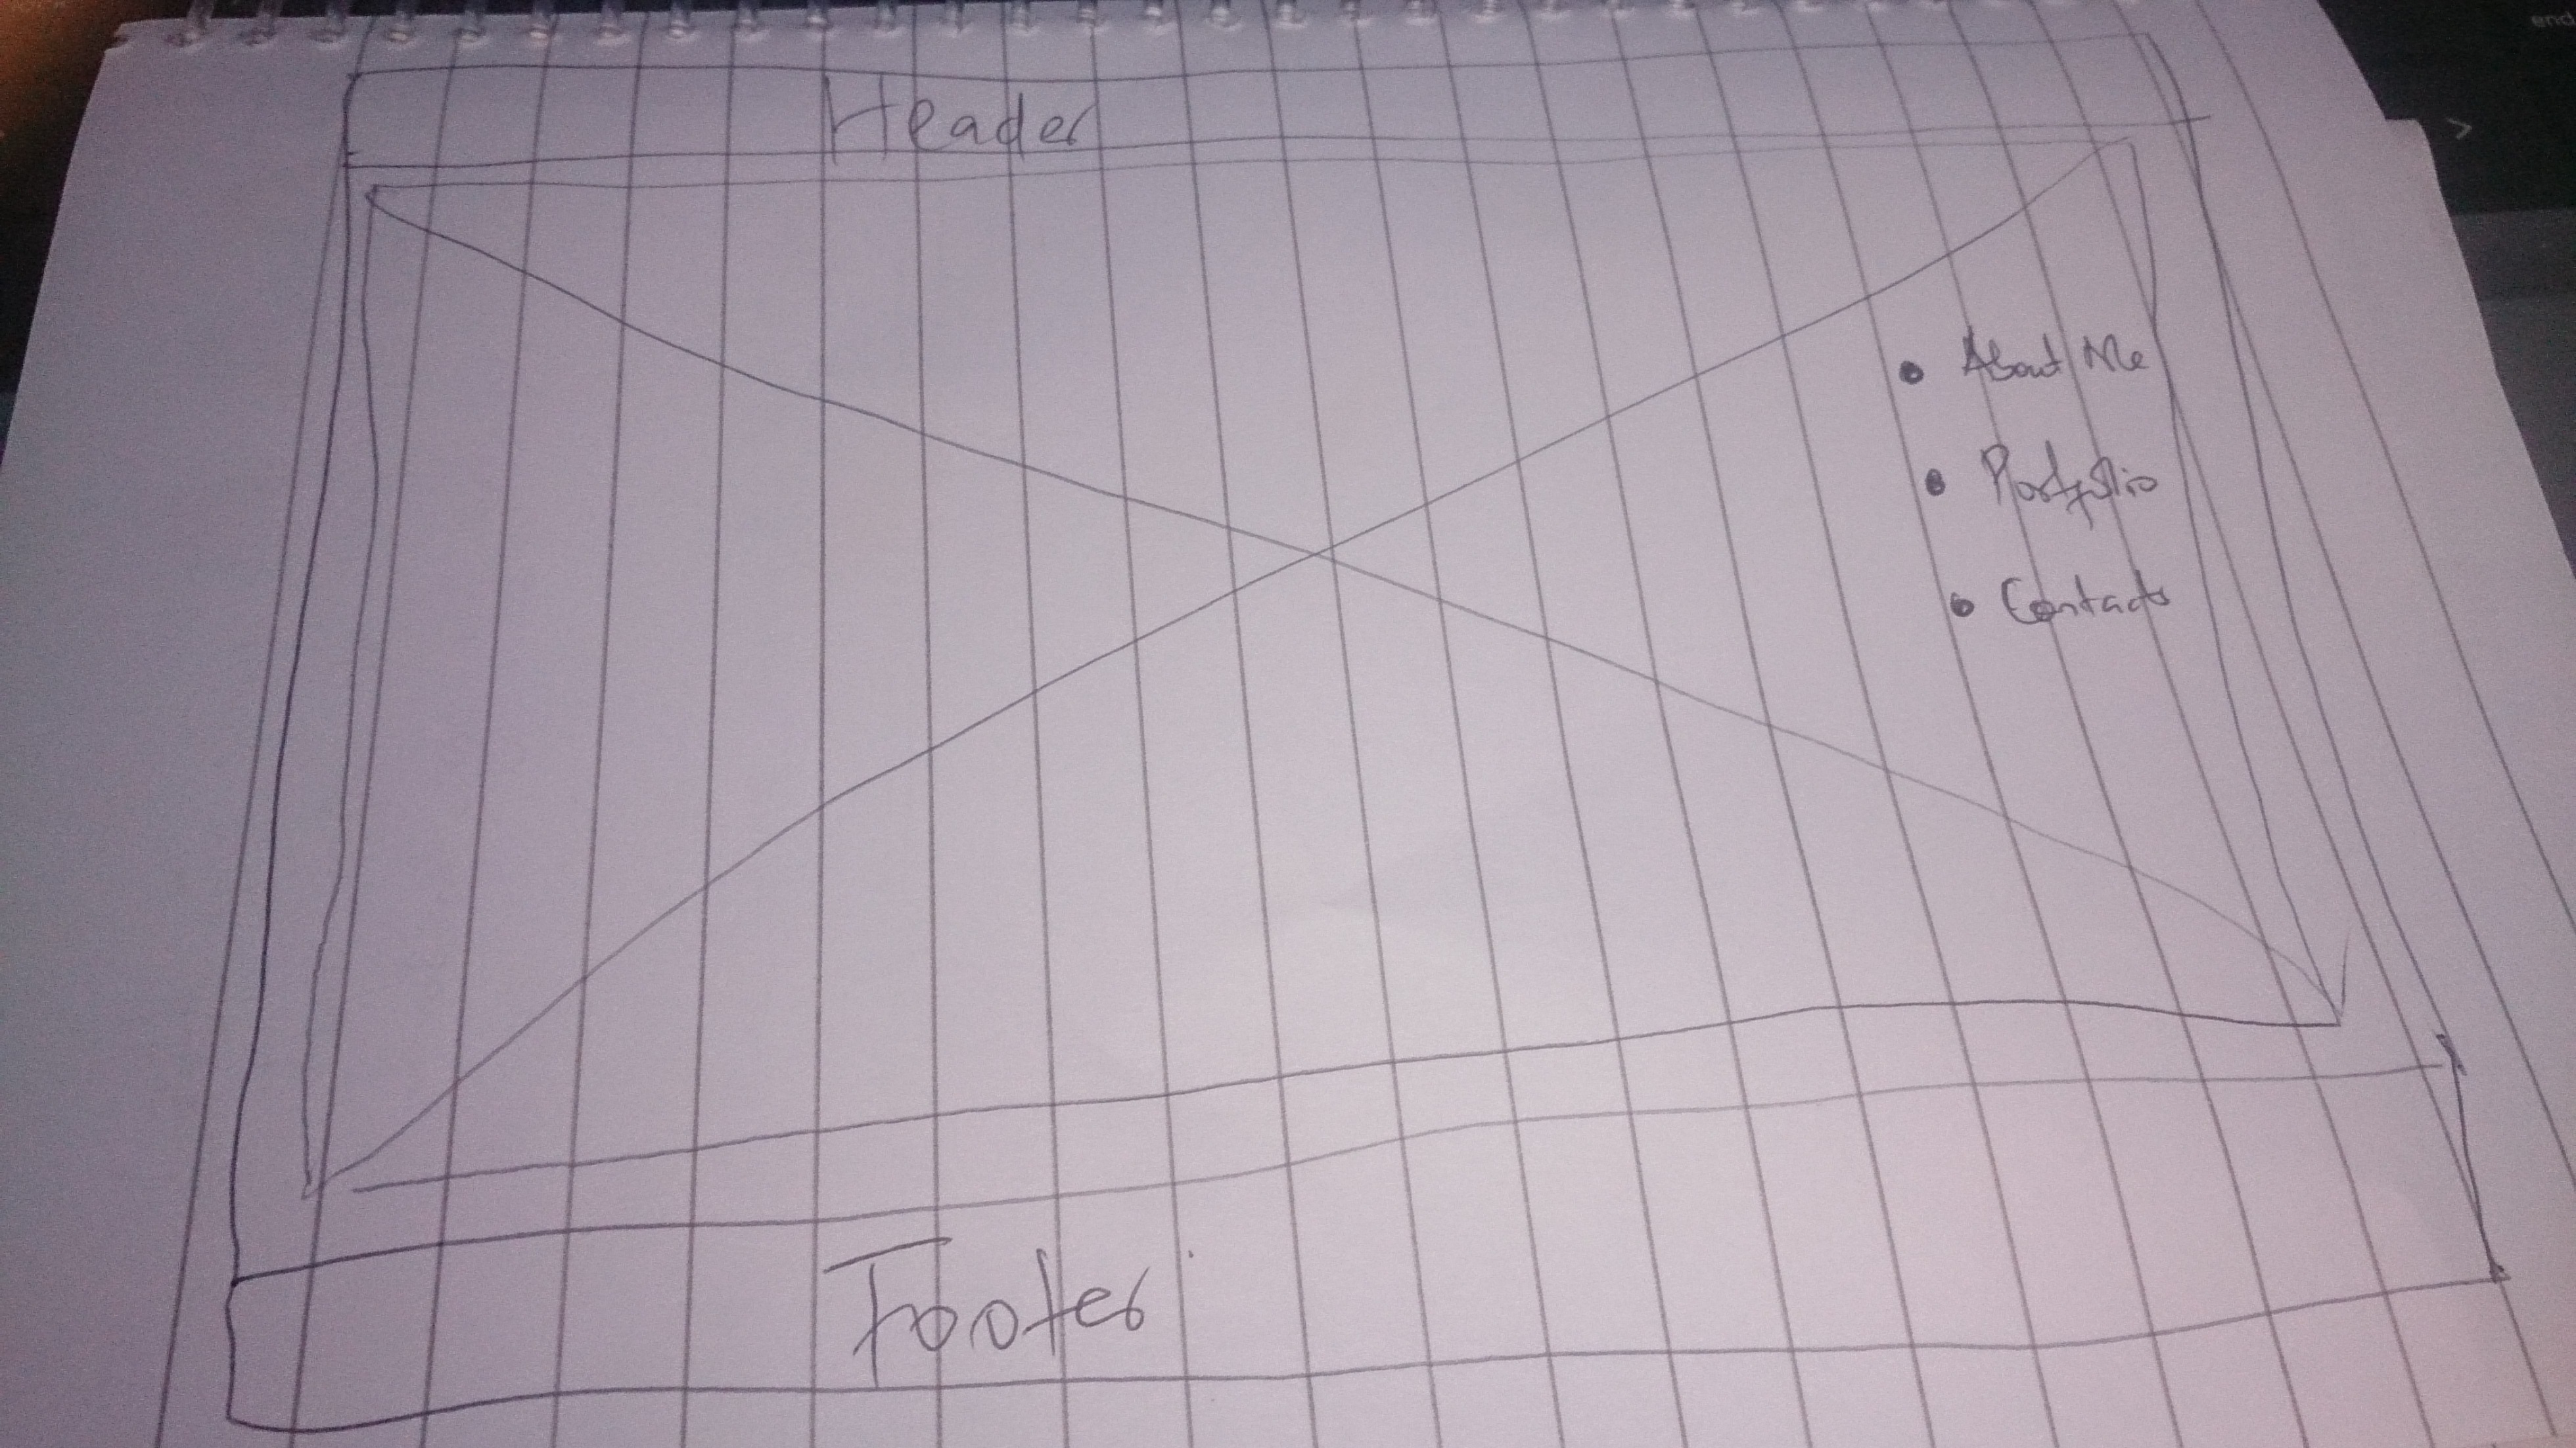 Header
• About Me
• Portfolio
• Contacts
Footer